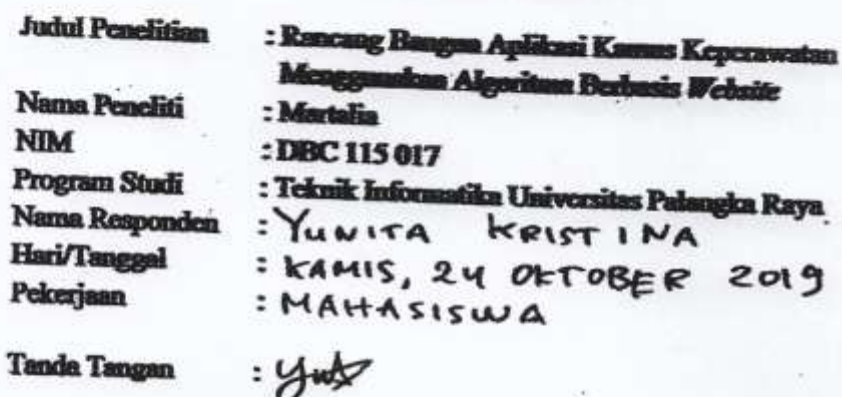 Judul Penelitian : Rancang Bangun Aplikasi Kamus Keperawatan
Menggunakan Algoritma Berbasis Website
Nama Peneliti : Martalia
NIM : DBC 115 017
Program Studi : Teknik Informatika Universitas Palangka Raya
Nama Responden : YUNITA KRISTINA
Hari/Tanggal : KAMIS, 24 OKTOBER 2019
Pekerjaan : MAHASISWA
Tanda Tangan :